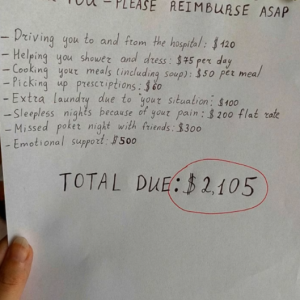 YOU - PLEASE REIMBURSE ASAP
- Driving you to and from the hospital: $120
- Helping you shower and dress: $75 per day
- Cooking your meals (including soup): $50 per meal
- Picking up prescriptions: $60
- Extra laundry due to your situation: $100
- Sleepless nights because of your pain: $200 flat rate
- Missed poker night with friends: $300
- Emotional support: $500
TOTAL DUE: $2,105